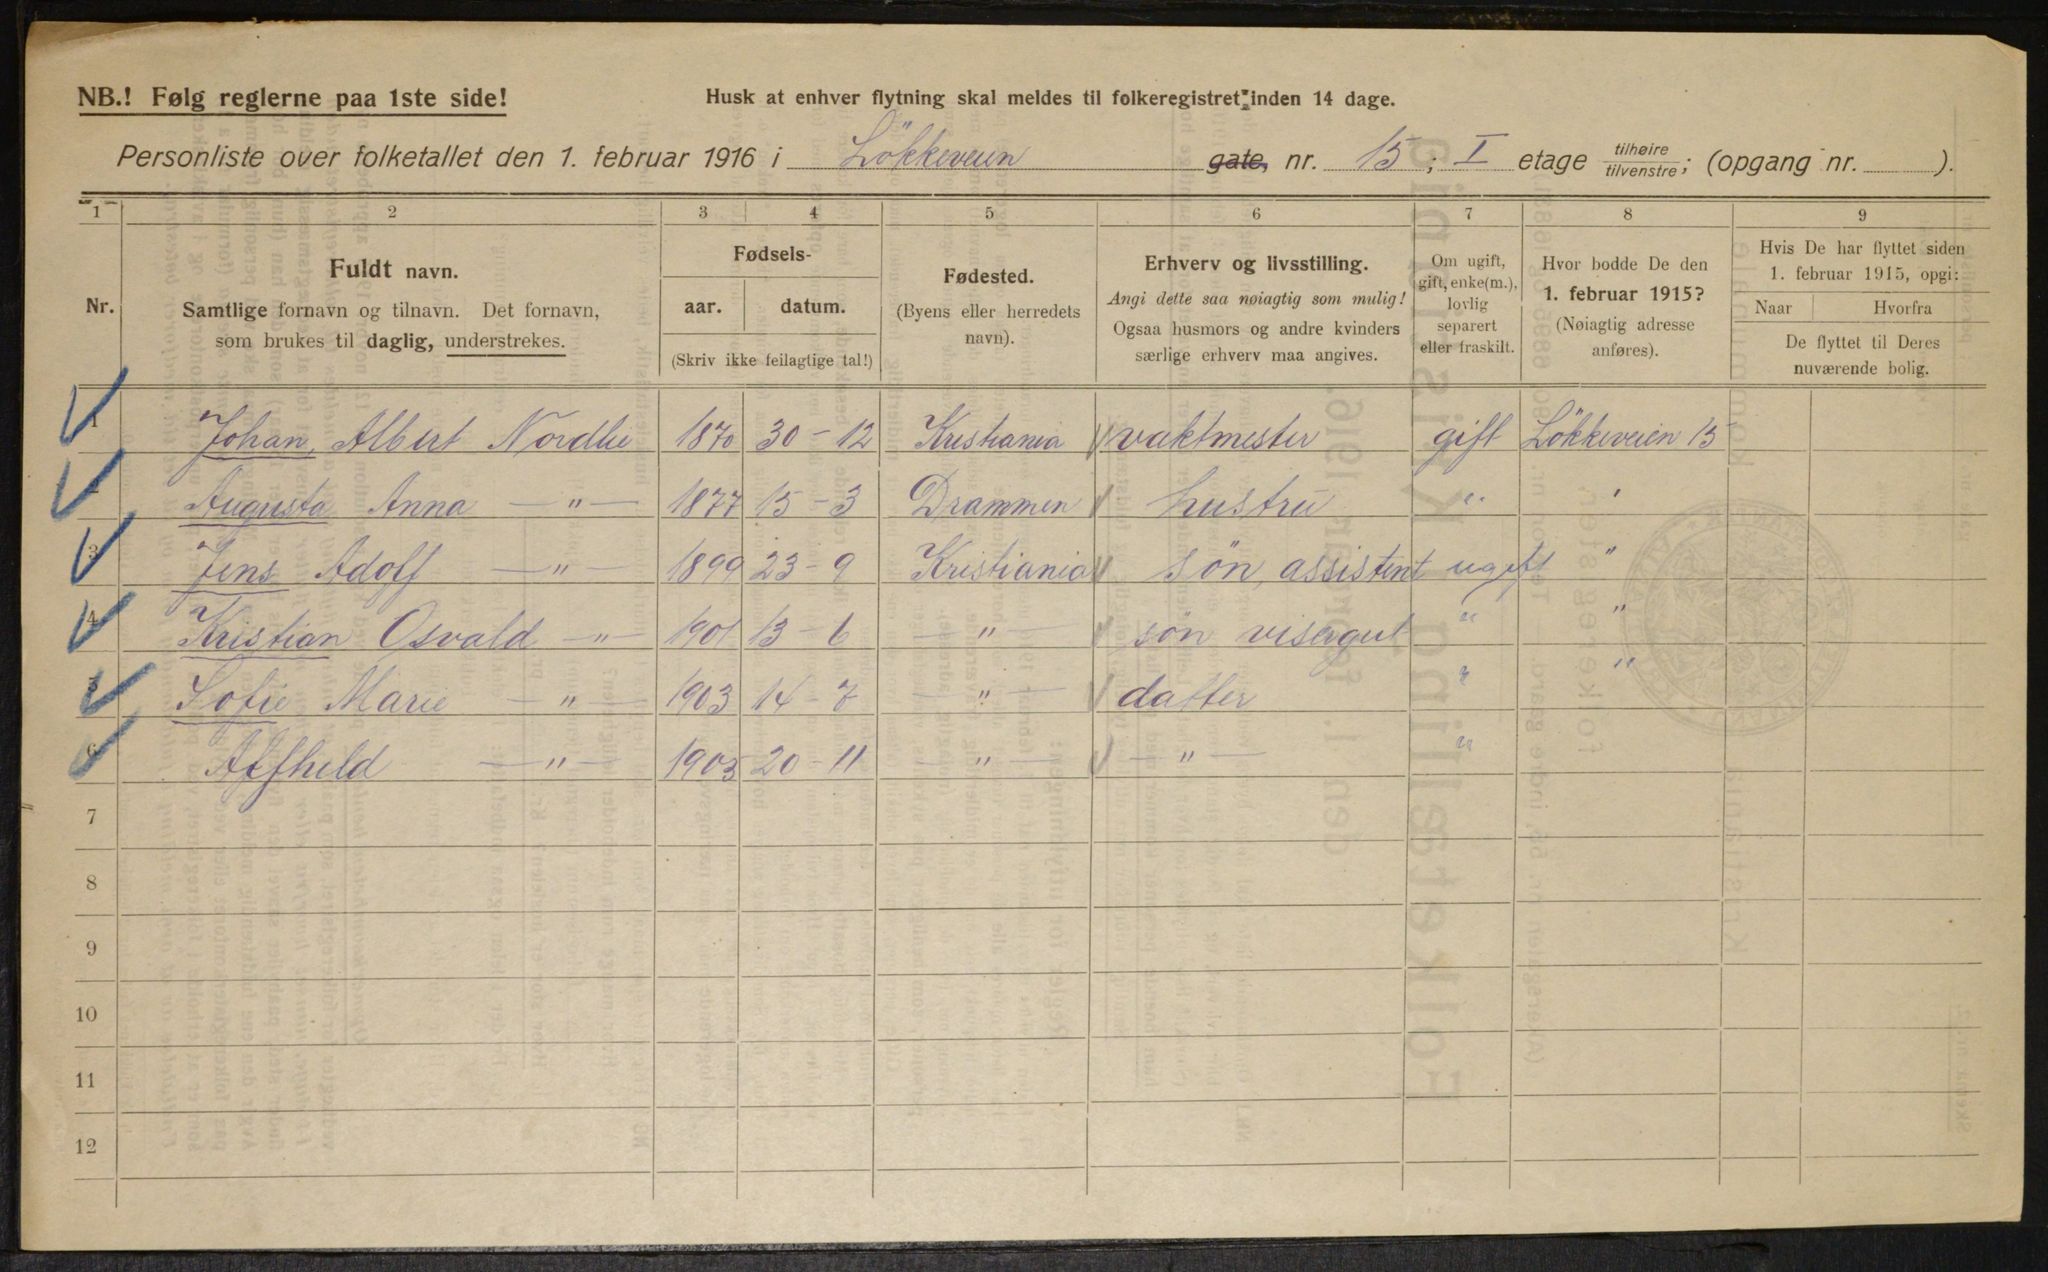 NB.! Følg reglerne paa 1ste side!
Husk at enhver flytning skal meldes til folkeregistret inden 14 dage.
Personliste over folketallet den 1. februar 1916 i Løkkeveien gate, nr. 15; I etage tilhøire/tilvenstre; (opgang nr. ).
1 2 3 4 5 6 7 8 9
Nr.
Fuldt navn.
Samtlige fornavn og tilnavn. Det fornavn,
som brukes til daglig, understrekes.
Fødsels-
aar. datum.
(Skriv ikke feilagtige tal!)
Fødested.
(Byens eller herredets
navn).
Erhverv og livsstilling.
Angi dette saa nøiagtig som mulig!
Ogsaa husmors og andre kvinders
særlige erhverv maa angives.
Om ugift,
gift, enke(m.),
lovlig
separert
eller fraskilt.
Hvor bodde De den
1. februar 1915?
(Nøiagtig adresse
anføres).
Hvis De har flyttet siden
1. februar 1915, opgi:
Naar Hvorfra
De flyttet til Deres
nuværende bolig.
1 Johan, Albert Nordlie 1870 30-12 Kristiania vaktmester gift Lökkeveien 15
2 Augusta Anna —"— 1877 15-3 Drammen hustru " "
3 Jens Adolf —"— 1899 23-9 Kristiania søn, assistent ugift "
4 Kristian Osvald —"— 1901 13-6 —"— søn visergut " "
5 Sofie Marie —"— 1903 14-7 —"— datter " "
6 —"— 20-11 —"— —"— "
7
8
9
10
11
12